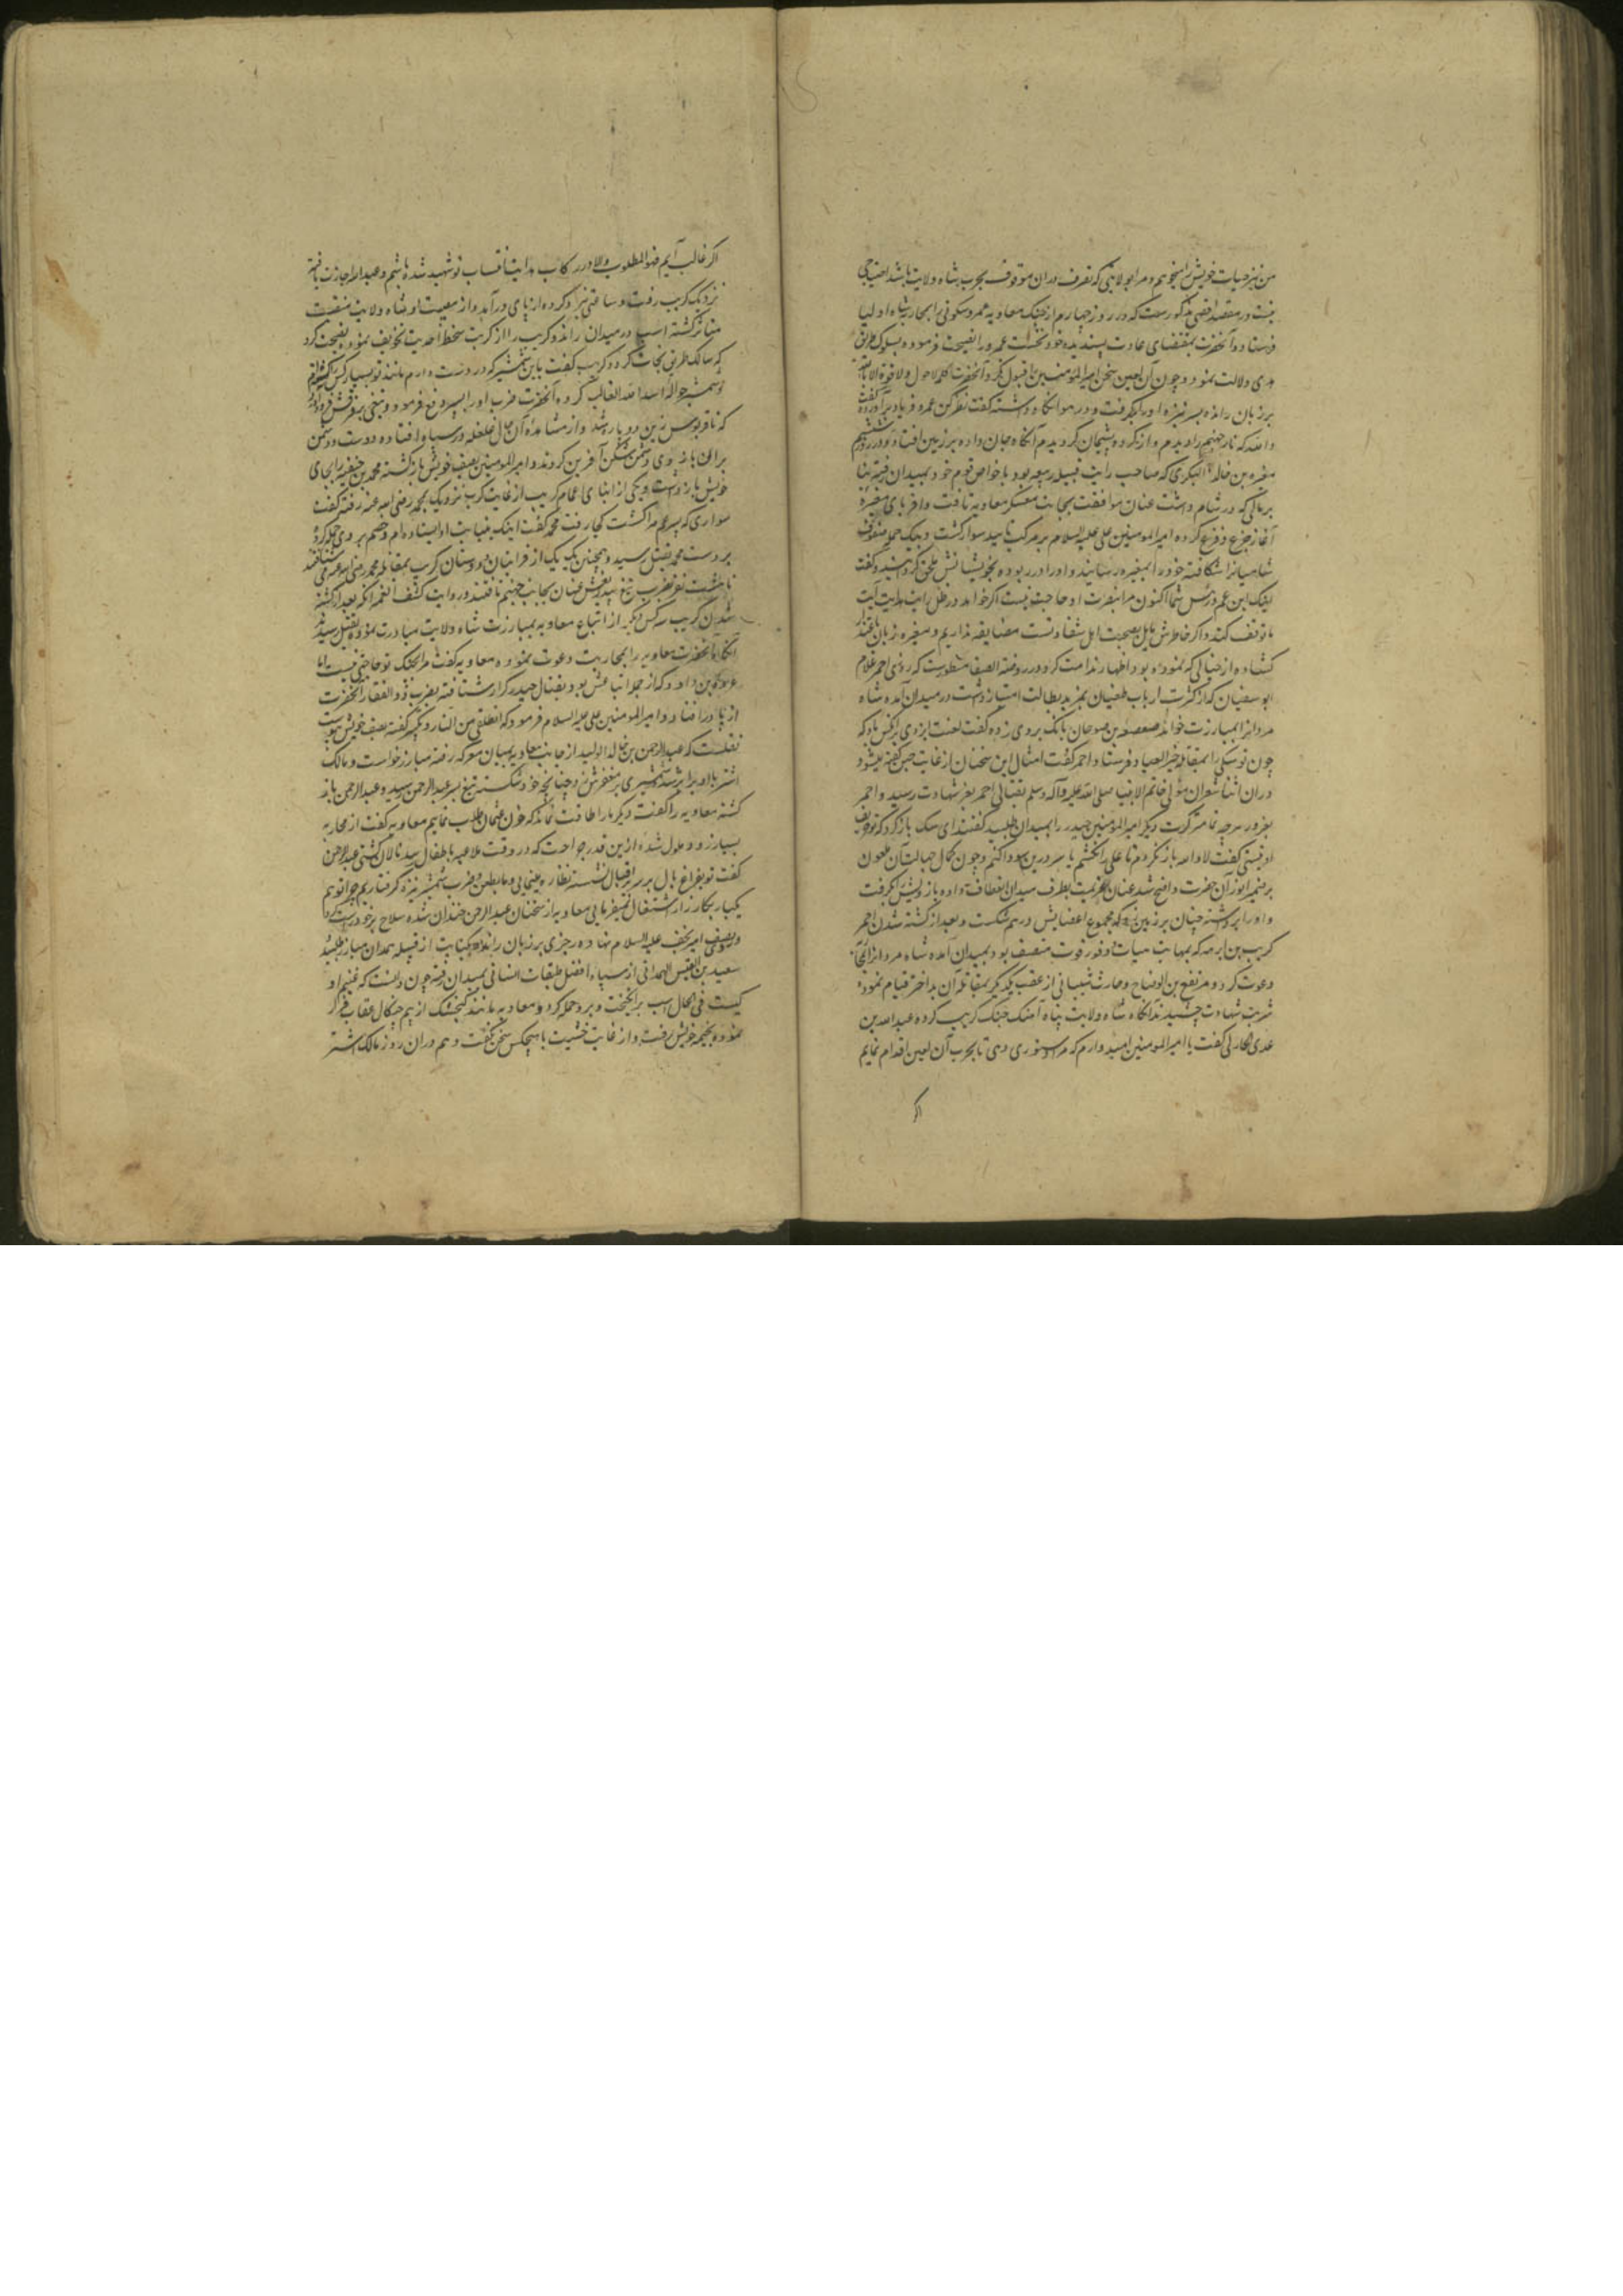 من نیز حیات خویش میخواهم و مرا بولایتی که تصرف در ان موقوف بحرب شاه ولایت باشد احتیاجی
نیست در مقصد اقصی مذکورست که در روز چهارم از جنک معاویه عمرو سکونی را بمحاربه شاه اولیا
فرستاد و آنحضرت بمقتضای عادت پسندیده خود نخست عمرو را نصیحت فرموده بسلوک طریق
هدی دلالت نمود و چون آن لعین سخن امیر المؤمنین را قبول نکرد آنحضرت کلمه لاحول ولا قوة الا بالله
بر زبان رانده بسر نیزه او را بر گرفت و در هوا نکاه داشته گفت نظر کن عمرو فریاد بر آورده گفت
والله که نار جهنم را دیدم و از کرده پشیمان کردیدم آنکاه جان داده بر زمین افتاد و در روز ششم
مغیره بن خالد البکری که صاحب رایت قبیله ربیعه بود با خواص قوم خود بمیدان رفته بنا
بر مالی که در شام داشت عنان موافقت بجانب معسکر معاویه تافت و اقربای مغیره
آغاز جزع و فزع کرده امیر المومنین علی علیه السلام بر مرکب تایید سوار کشت و بیک حمله صفوف
شامیانرا شکافته خود را بمغیره رسانید و او را در ربوده بخویشانش ملحق کردانید و گفت
اینک ابن عم و رئیس شما اکنون مرا بنصرت او حاجت نیست اکر خواهد در ظل رایت هدایت آیت
ما توقف کند و اکر خاطرش مایل بصحبت اهل شقاوتست مضایقه نداریم و مغیره زبان باعتذار
کشاده از خیالی که نموده بود اظهار ندامت کرد و در روضة الصفا مسطورست که روزی احمر غلام
ابو سفیان که از کثرت ارباب طغیان بمزید بطالت امتیاز داشت در میدان آمده شاه
مردانرا بمبارزت خواند صعصعه بن صوحان بانک بر وی زده گفت لعنت ایزدی بر انکس باد که
چون تو سکی را بمقابله خیر العباد فرستاد احمر گفت امثال این سخنان از غایت جبن گفته میشود
در ان اثنا شقران مولی خاتم الانبیا صلی الله علیه وآله وسلم بقتال احمر بعز شهادت رسید و احمر
بغرور هرچه تمامتر کرت دیکر امیر المؤمنین حیدر را بمیدان طلبید گفتند ای سک باز کرد که تو حریف
او نیستی گفت لا والله باز نکردم تا علی را نکشم یا سر درین سودا کنم و چون کمال جهالت آن ملعون
بر ضمیر انور آن حضرت واضح شد عنان عزیمت بطرف میدان انعطاف داده بازویش بگرفت
و او را بر داشته چنان بر زمین زد که مجموع اعضایش درهم شکست و بعد از کشته شدن احمر
کریب بن ابرهه که بمهابت هیات و وفور قوت متصف بود بمیدان آمده شاه مردانرا آنجا
دعوت کرد و مرتفع بن الوضاح و حارث شیبانی از عقب یکدیکر بمقاتله آن بد اختر قیام نموده
شربت شهادت چشیدند آنکاه شاه ولایت پناه آهنک جنک کریب کرده عبد الله بن
عدی الحارثی گفت یا امیر المومنین امیدوارم که مرا دستوری دهی تا بحرب آن لعین اقدام نمایم
اکر
اکر غالب آیم فهو المطلوب والا در رکاب هدایت انتساب تو شهید شده باشم و عبد الله اجازت یافته
نزدیک کریب رفت و ساعتی نبرد کرده از پای در آمد و از معیبت او شاه ولایت منقبت
متاثر کشته اسب در میدان راند و کریب را از کربت سخط احدیت تخویف نموده نصیحت کرد
که سالک طریق نجات کردد کریب گفت باین شمشیر که در دست دارم مانند تو بسیار کس کشته ام
و شمشیر حواله اسد الله الغالب کرده آنحضرت ضرب او را بسپر دفع فرمود و تیغی بر فرقش فرود آورد
که تا قربوس زین دو پاره شد و از مشاهده آن حال غلغله در سپاه افتاده دوست و دشمن
بران بازوی دشمن شکن آفرین کردند و امیر المومنین بصف خویش باز کشته محمد بن حنفیه را بجای
خویش باز داشت و یکی از ابنای اعمام کریب از غایت کرب نزدیک بمحمد رضی الله عنه رفته گفت
سواری که پسر عم مرا کشت کجا رفت محمد گفت اینک بنیابت او ایستاده ام و خصم بر وی حمله کرده
بر دست محمد بقتل رسید و همچنین یک یک از قرابتان و دوستان کریب بمقابله محمد رضی الله عنه می شتافتند
تا هشت نفر بضرب تیغ بیدریغش عنان بجانب جهنم تافتند و روایت کشف الغمه آنکه بعد از کشته
شدن کریب سه کس دیکر از اتباع معاویه بمبارزت شاه ولایت مبادرت نموده بقتل رسیدند
آنکاه آنحضرت معاویه را بمحاربت دعوت نموده معاویه گفت مرا بجنک تو حاجتی نیست اما
عروه بن داود که از جمله اتباعش بود بقتال حیدر کرار شتافته بضرب ذوالفقار آنحضرت
از پا در افتاد و امیر المومنین علی علیه السلام فرمود که انطلق من النار و تکبیر گفته بصف خویش پیوست
نقلست که عبد الرحمن بن خالد الولید از جانب معاویه بمیان معرکه رفته مبارز خواست و مالک
اشتر با او برابر شد شمشیری بر مغفرش زد چنانچه خود شکسته تیغ بسر عبد الرحمن رسید و عبد الرحمن باز
کشته معاویه را گفت دیکر ما را طاقت نماند که خون عثمان طلب نماییم معاویه گفت از محاربه
بسیار زود ملول شده ازین قدر جراحت که در وقت ملاعبه باطفال رسد نالان کشتی عبد الرحمن
گفت تو بفراغ بال بر سریر اقبال نشسته نظاره مینمایی و ما بطعن و ضرب شمشیر و نیزه کرفتاریم چرا تو هم
یکبار بکارزار اشتغال نمیفرمایی معاویه از سخنان عبد الرحمن خندان شده سلاح بر خود راست کرد
و بصف امیر نجف علیه السلام نهاده رجزی بر زبان رانده بکنایت از قبیله همدان مبارز طلبید
سعید بن القیس الهمدانی از سپاه افضل طبقات انسانی بمیدان رفته چون دانست که غنیم او
کیست فی الحال اسب بر انکیخت و بر و حمله کرد و معاویه مانند کنجشک از بیم چنکال عقاب فرار
نموده بخیمه خویش رفت و از غایت خشیت با هیچکس سخن نگفت و هم در ان روز مالک اشتر